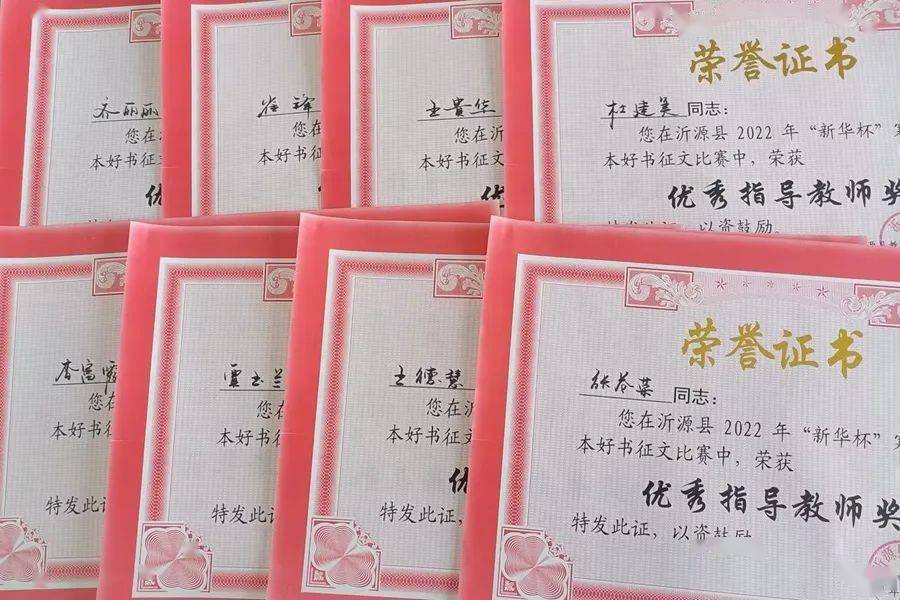 齐丽丽
您在
本好书
优
崔锋
您在沂
本好书征
王贵华
您在沂
本好书征文
优
荣誉证书
杜建美同志：
您在沂源县2022年“新华杯”
本好书征文比赛中，荣获
优秀指导教师奖
以资鼓励。
李富霞
您在
本好书
特发此
您在沂
本好书征
特发此证
王德慧
您在沂
本好书征文
优
特发此证，
荣誉证书
张苍菜同志：
您在沂源县2022年“新华杯”
本好书征文比赛中，荣获
优秀指导教师奖
特发此证，以资鼓励